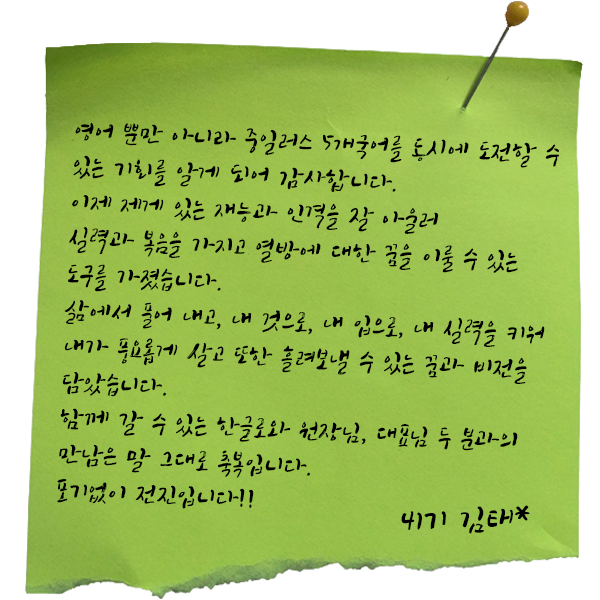 영어 뿐만 아니라 중일러스 5개국어를 동시에 도전할 수
있는 기회를 알게 되어 감사합니다.
이제 제게 있는 재능과 인격을 잘 아울러
실력과 복음을 가지고 열방에 대한 꿈을 이룰 수 있는
도구를 가졌습니다.
삶에서 풀어 내고, 내 것으로, 내 입으로, 내 실력을 키워
내가 풍요롭게 살고 또한 흘려보낼 수 있는 꿈과 비전을
담았습니다.
함께 갈 수 있는 한글로와 원장님, 대표님 두 분과의
만남은 말 그대로 축복입니다.
포기없이 전진입니다!!
41기 김태*